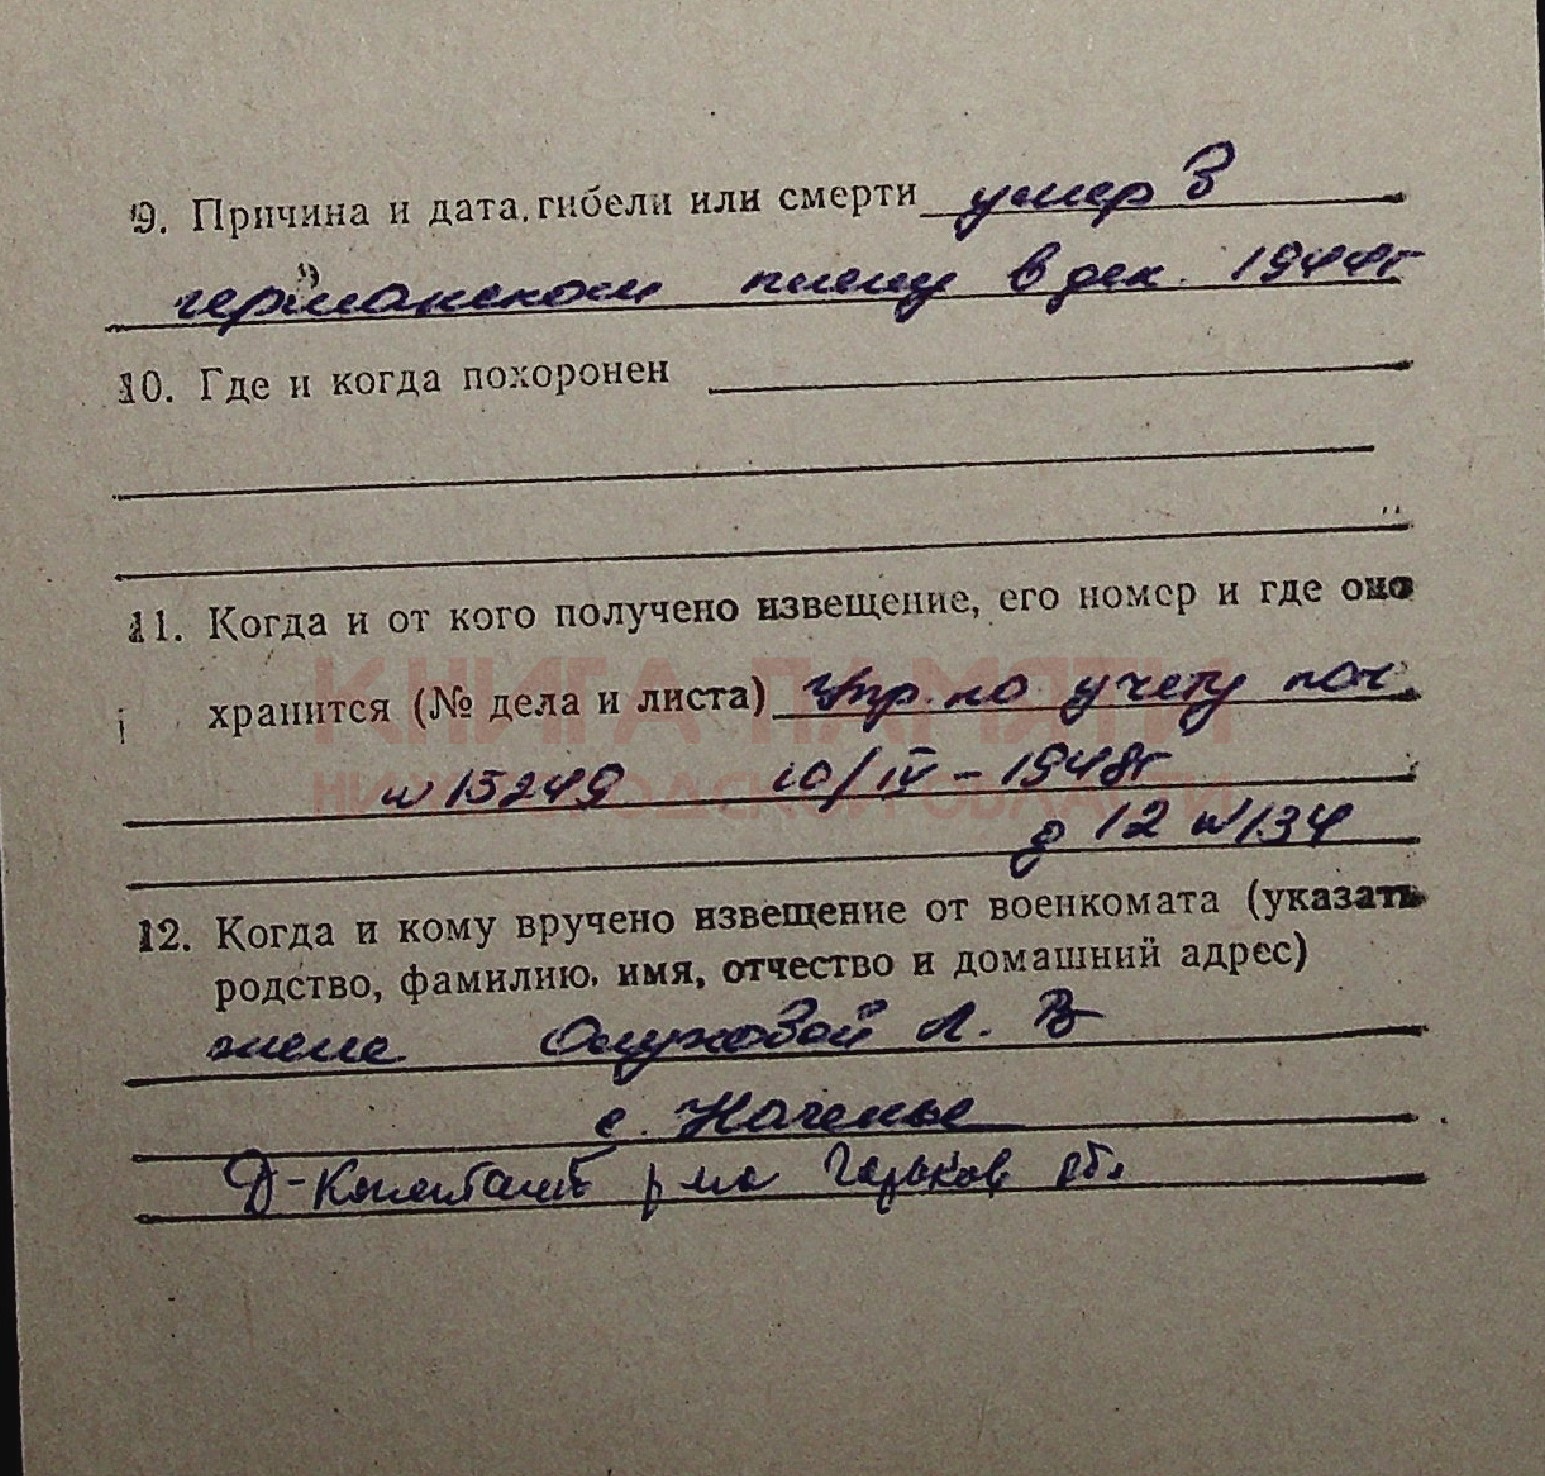 9. Причина и дата гибели или смерти умер в
германском плену в дек. 1944г
10. Где и когда похоронен
11. Когда и от кого получено извещение, его номер и где оно
хранится (№ дела и листа) Упр. по учету пог.
КНИГА ПАМЯТИ
N 15249 10/IV - 1948г
НИЖЕГОРОДСКОЙ ОБЛАСТИ
д 12 N 134
12. Когда и кому вручено извещение от военкомата (указать
родство, фамилию, имя, отчество и домашний адрес)
жене А. В
с.
Д-Констант р-на Горьков обл